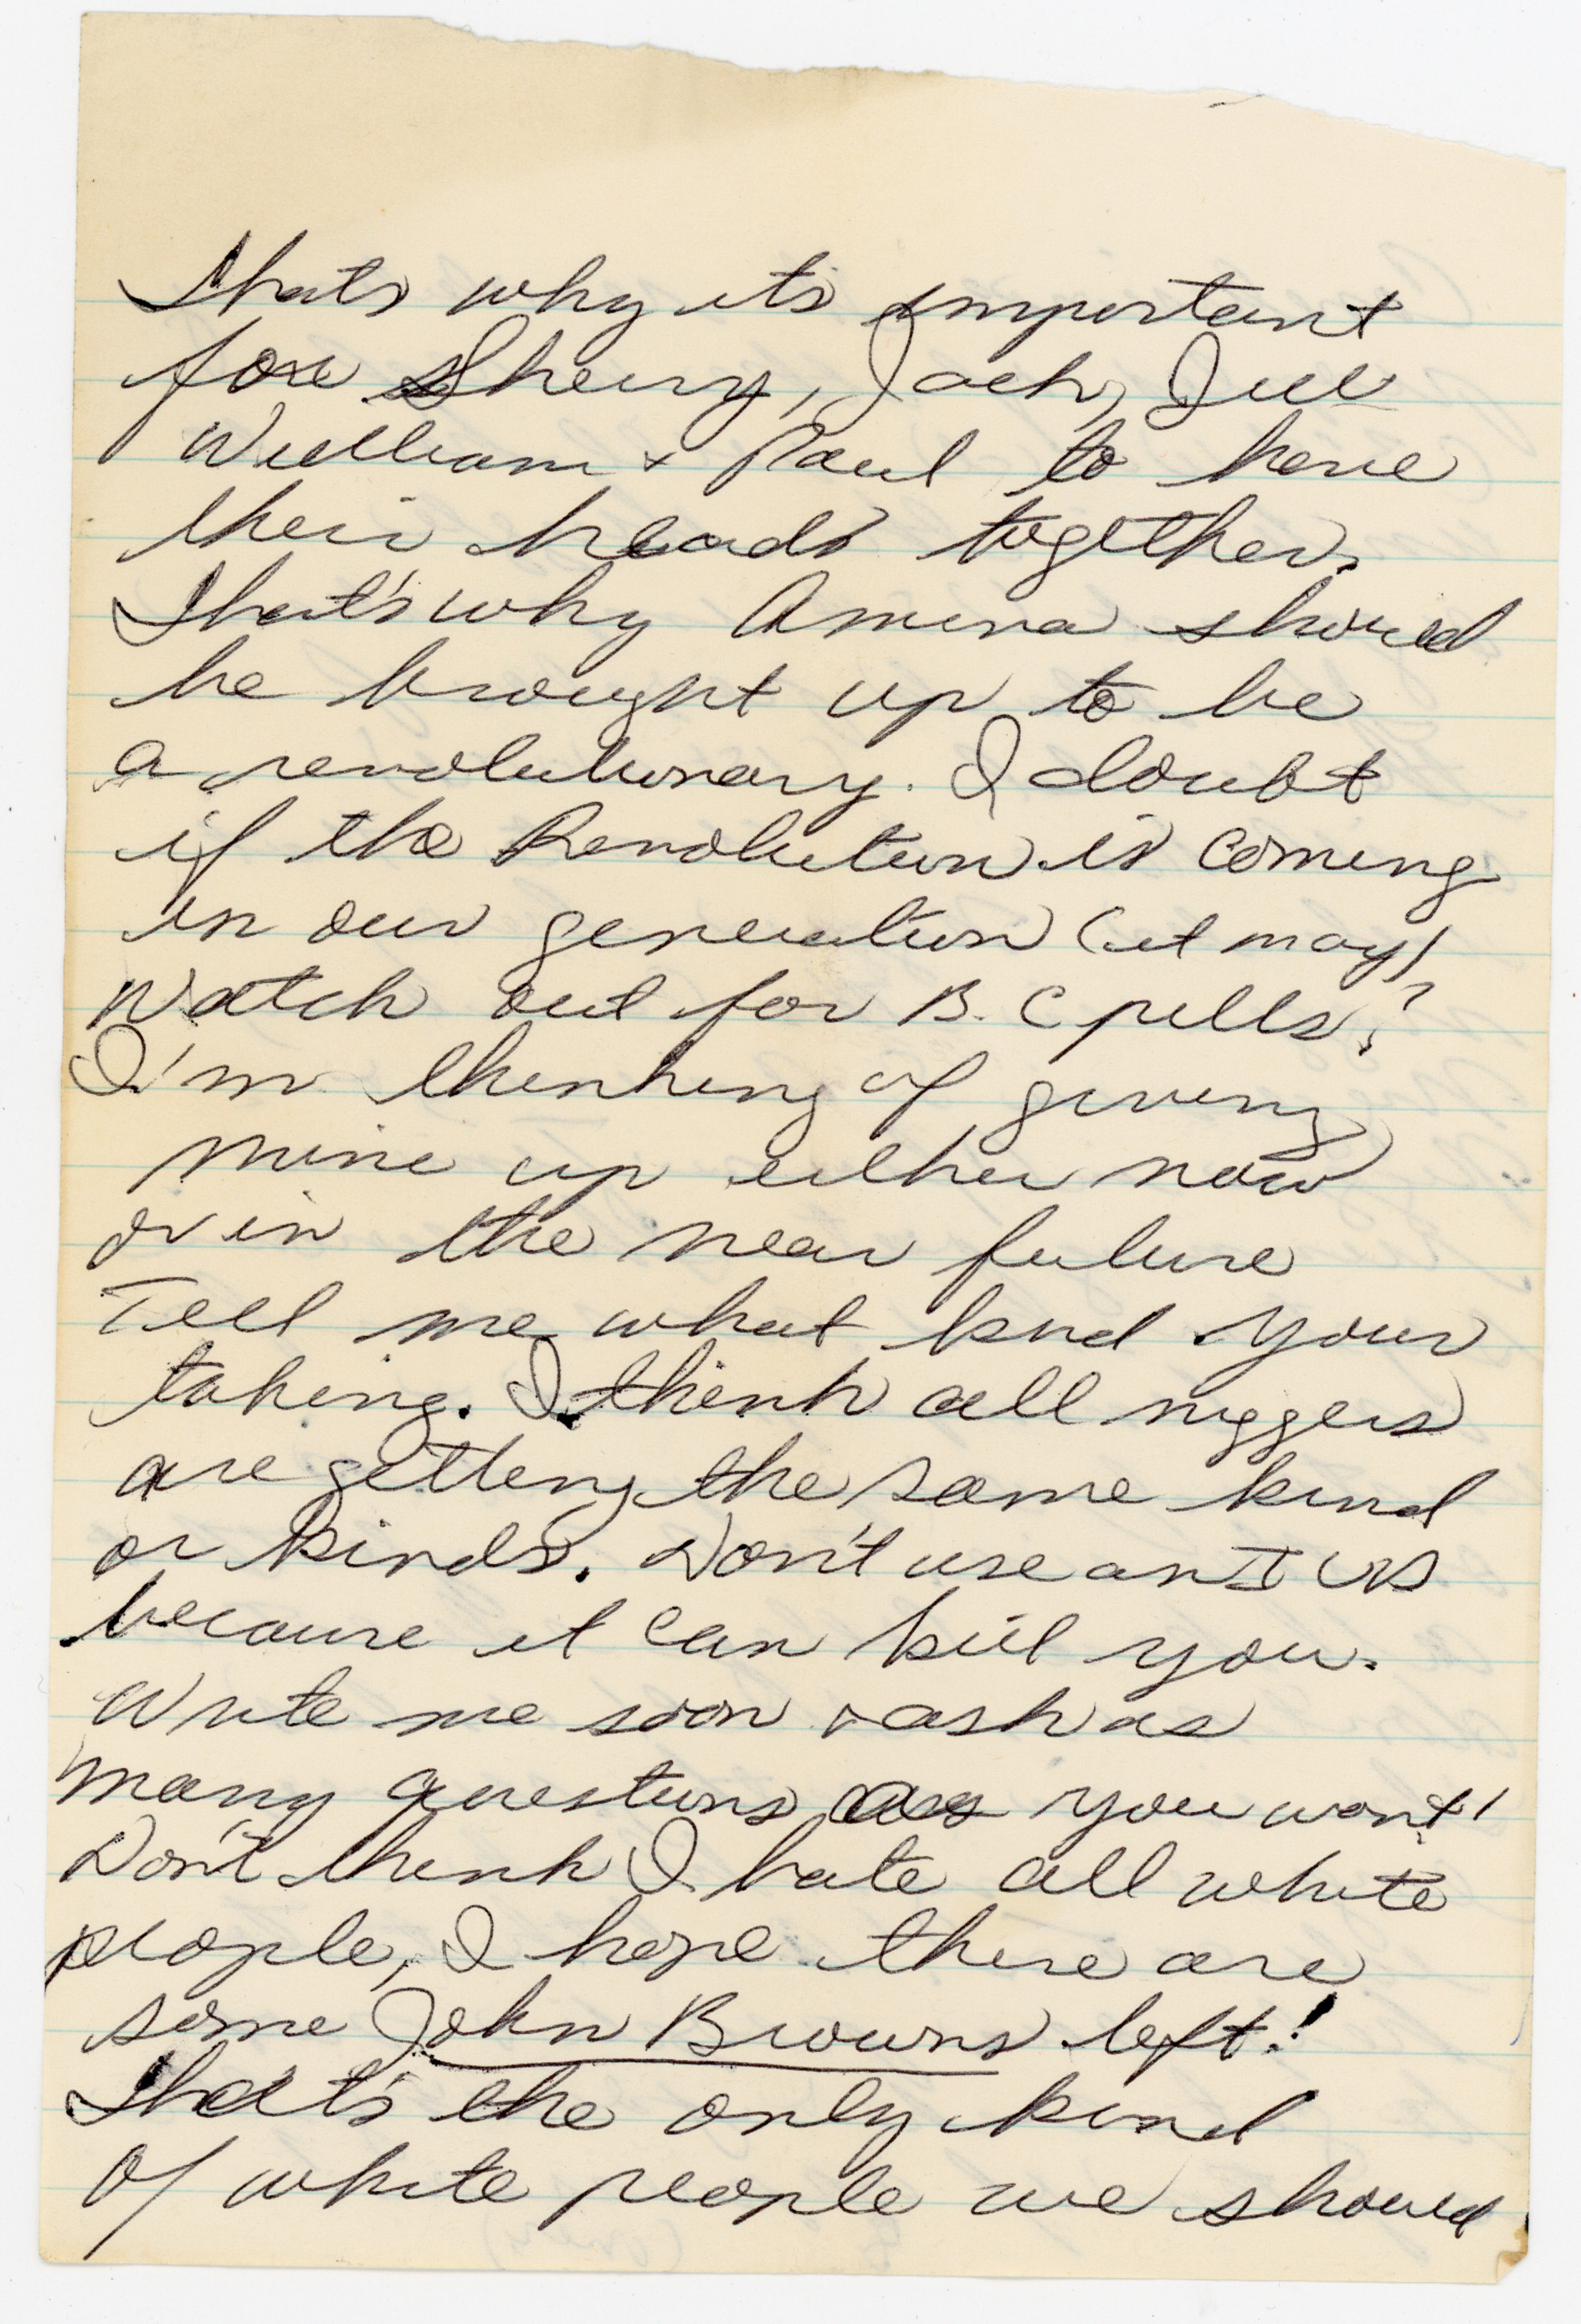 Thats why its important
for Sherry, Jack, Jill
William + Paul to have
their heads together.
That's why Amina should
be brought up to be
a revolutionary. I doubt
if the Revolution is coming
in our generation (it may)
Watch out for B. C pills!
I'm thinking of giving
mine up either now
or in the near future
Tell me what kind your
taking. I think all niggers
are getting the same kind
or kinds. Don't use an IUD
because it can kill you.
Write me soon + ask as
many questions as you want!
Don't think I hate all white
people, I hope there are
some John Browns left!
That's the only kind
of white people we should